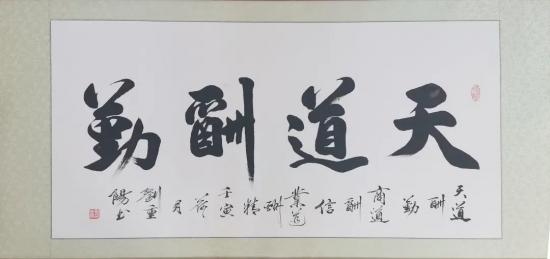 天道酬勤
天道酬勤商道酬信業道酬精壬寅月劉重陽书